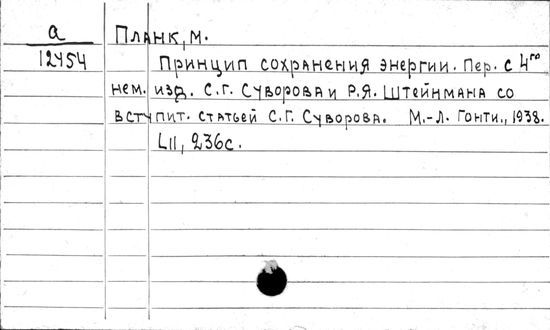 а
12454
Планк, М.
Принцип сохранения энергии. Пер. с 4го
нем. изд. С.Г. Суворова и Р.Я. Штейнмана со
вступит. статьей С.Г. Суворова. М.-Л. Гонти., 1938.
LII, 236с.